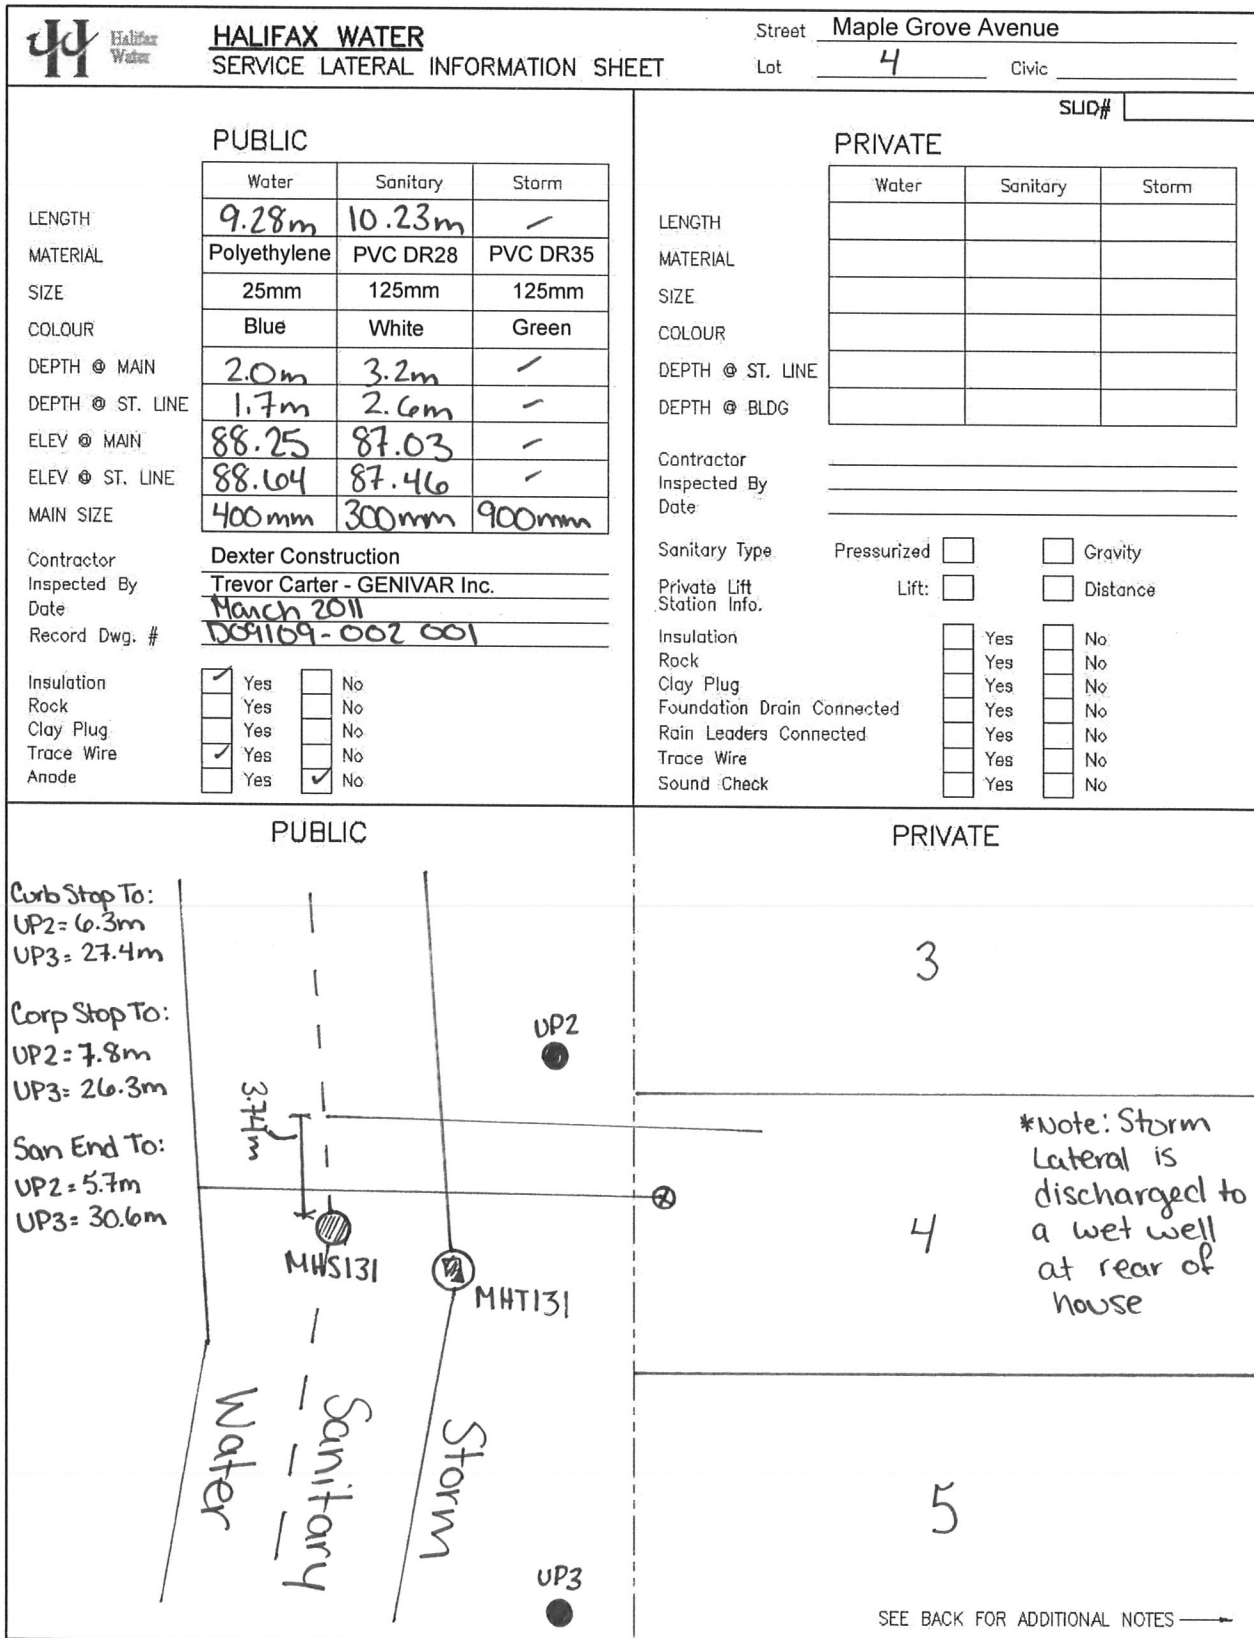 Halifax Water
HALIFAX WATER
SERVICE LATERAL INFORMATION SHEET
Street Maple Grove Avenue
Lot 4 Civic
SLID#
PUBLIC
Water Sanitary Storm
LENGTH 9.28m 10.23m -
MATERIAL Polyethylene PVC DR28 PVC DR35
SIZE 25mm 125mm 125mm
COLOUR Blue White Green
DEPTH @ MAIN 2.0m 3.2m -
DEPTH @ ST. LINE 1.7m 2.6m -
ELEV @ MAIN 88.25 87.03 -
ELEV @ ST. LINE 88.64 87.46 -
MAIN SIZE 400mm 300mm 900mm
Contractor Dexter Construction
Inspected By Trevor Carter - GENIVAR Inc.
Date March 2011
Record Dwg. # D09109-002 001
Insulation ✓ Yes No
Rock Yes No
Clay Plug Yes No
Trace Wire ✓ Yes No
Anode Yes ✓ No
PRIVATE
Water Sanitary Storm
LENGTH
MATERIAL
SIZE
COLOUR
DEPTH @ ST. LINE
DEPTH @ BLDG
Contractor
Inspected By
Date
Sanitary Type Pressurized Gravity
Private Lift Station Info. Lift: Distance
Insulation Yes No
Rock Yes No
Clay Plug Yes No
Foundation Drain Connected Yes No
Rain Leaders Connected Yes No
Trace Wire Yes No
Sound Check Yes No
PUBLIC
Curb Stop To:
UP2= 6.3m
UP3= 27.4m
Corp Stop To:
UP2= 7.8m
UP3= 26.3m
San End To:
UP2= 5.7m
UP3= 30.6m
3.74m
UP2
MHS131
MHT131
Water
Sanitary
Storm
UP3
PRIVATE
3
4
*Note: Storm
Lateral is
discharged to
a wet well
at rear of
house
5
SEE BACK FOR ADDITIONAL NOTES